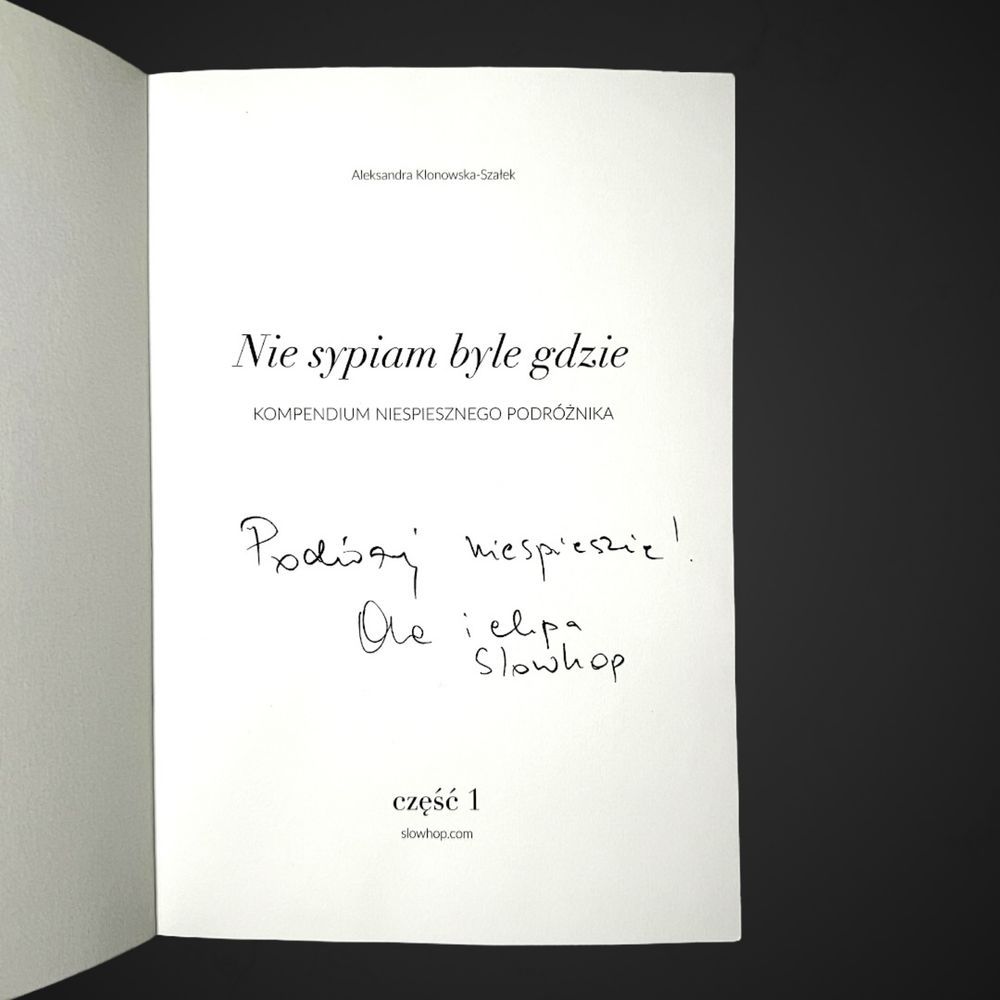 Aleksandra Klonowska-Szałek
Nie sypiam byle gdzie
KOMPENDIUM NIESPIESZNEGO PODRÓŻNIKA
Podróżuj niespiesznie!
Ola i ekipa
Slowhop
część 1
slowhop.com